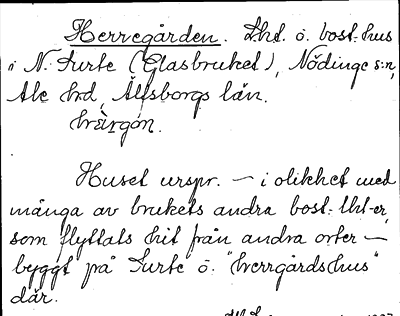 Herregården. Lht. o. bost. hus
i N. Surte (Glasbruket), Nödinge s:n,
Ale hrd, Älfsborgs län.
Huset urspr. — i olikhet med
många av brukets andra bost. lht-er,
som flyttats hit från andra orter —
byggt på Surte o. "herrgårdshus"
där.